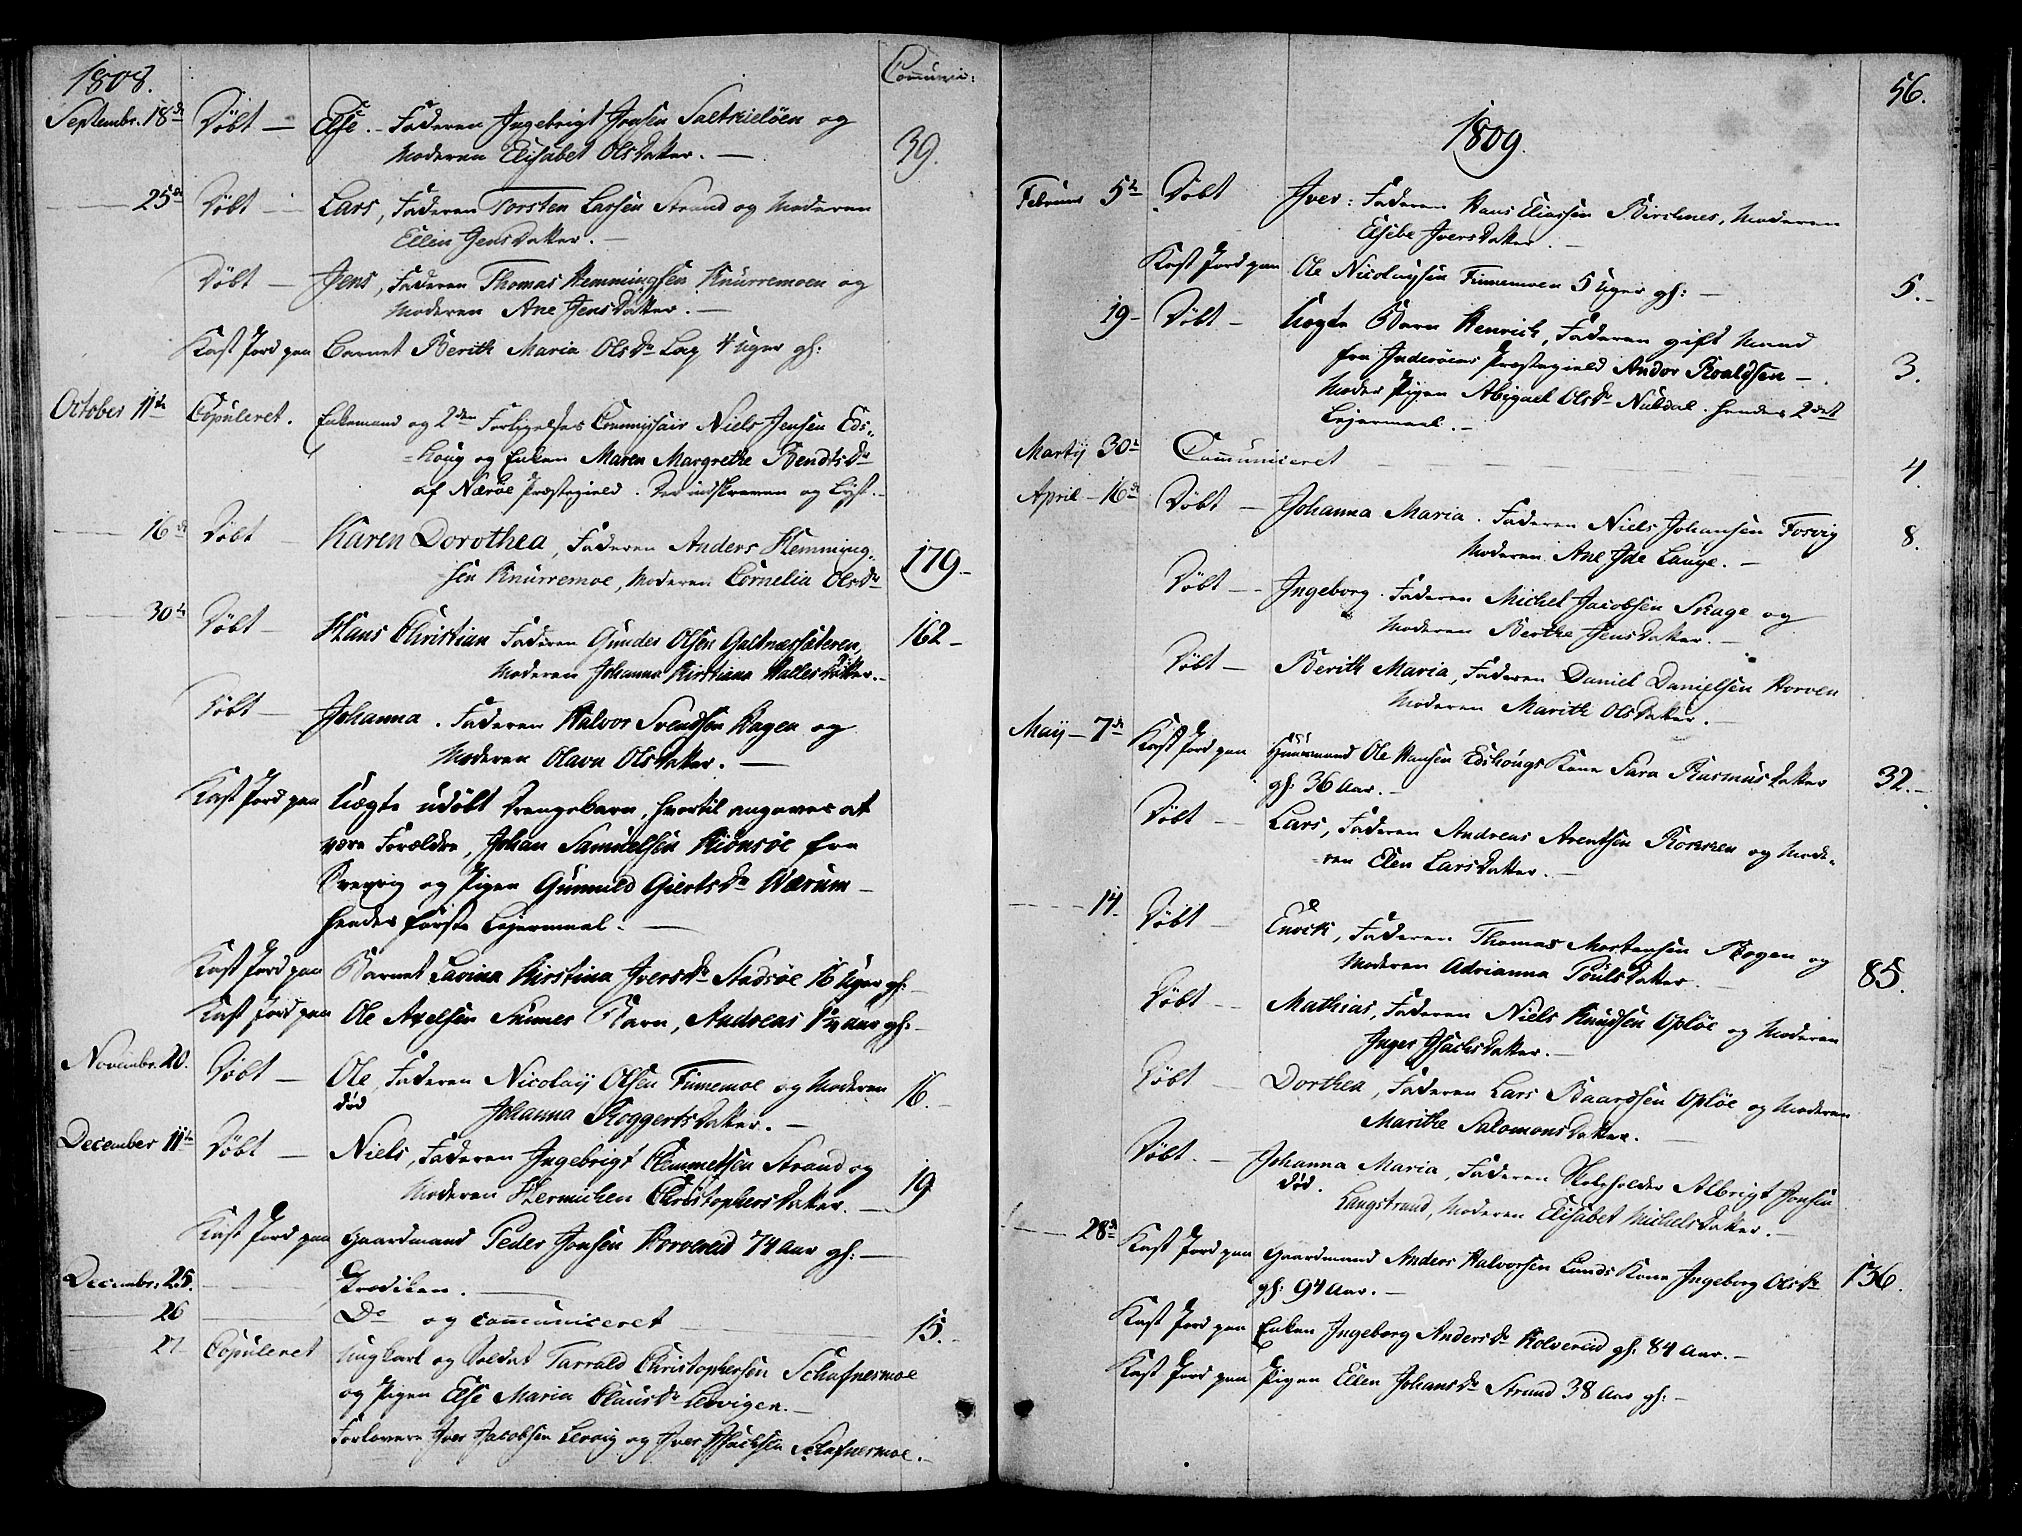 1808.
Communi:
Septembr. 18de Døbt — Else. Faderen Ingebrigt Jonsen Saltkieløen og
Moderen Elisabet Olsdatter. —
39.
— 25de Døbt — Lars, Faderen Torsten Larsen Strand og Moderen
Ellen Jensdatter. —
Døbt — Jens, Faderen Thomas Hemmingsen Knurremoen og
Moderen Ane Jensdatter. —
Kast Jord paa Barnet Berith Maria Olsdr Lay 4 Uger gl:
October 11te Copuleret. Enkemand og 2den Forligelses Commissair Niels Jensen Eds-
houg og Enken Maren Margrethe Bendtsdr
af Nærøe Præstegield.
— 16de Døbt — Karen Dorothea, Faderen Anders Hemming-
sen Knurremoe, Moderen Cornelia Olsdr
179.
— 30te Døbt — Hans Christian Faderen Gunder Olsen
Moderen Johanna Kirstiana Hallesdatter. —
162 —
Døbt — Johanna. Faderen Halvor Svendsen Hagen og
Moderen Olava Olsdatter. —
Kast Jord paa Uægte udøbt Drengebarn, hvortil angaves at
være Forældre, Johan Samuelsen Kiønsøe fra
og Pigen Gunnild Giertsdr Værum —
hendes første Lejermaal. —
Kast Jord paa Barnet Lavina Kirstina Iversdr Stadsøe 16 Uger gl: —
Kast Jord paa Ole Axelsen Barn, Andreas 1½ aar gl: —
Novembr. 20. Døbt — Ole Faderen Nicolaij Olsen Finnemoe og Moderen
død Johanna Roggertsdatter. —
16. —
December 11te Døbt — Niels, Faderen Ingebrigt Clemmetsen Strand og
Moderen Hermichen Christophersdatter. —
19
Kast Jord paa Gaardmand Peder Jonsen Horvereid 74 Aar gl: —
Decembr. 25. — Prædiken. —
— 26 — Do og communiceret
15. —
27 Copuleret Ungkarl og Soldat Tarrald Christophersen Schafnesmoe
og Pigen Else Maria Clausdr Lervigen. —
Forlovere Iver Jacobsen Lervig og Iver Isachsen Schafnesmoe. —
56.
1809.
Februar 5te Døbt Iver: Faderen Hans Eliassen Birchnes, Moderen
Elsebe Iversdatter. —
Kast Jord paa Ole Nicolaysen Finnemoen 5 Uger gl: —
5. —
19 — Døbt — Uægte Barn Henrich, Faderen gift Mand
fra Inderøens Præstegield Andor Roaldsen —.
Moder Pigen Abigael Olsdr Nubdal. hendes 2det
Lejermaal. —
3.
Martij 30te Communiceret — — — —
4.
April — 16de Døbt — Johanna Maria. Faderen Niels Johansen Fosvig
Moderen Ane Ide Lange. —
8.
Døbt — Ingeborg. Faderen Michel Jacobsen Skage og
Moderen Berthe Jensdatter. —
Døbt — Berith Maria, Faderen Daniel Danielsen Horven
Moderen Marith Olsdatter. —
Maij — 7de Kast Jord paa Huusmand Ole Hansen Edshougs Kone Sara Rasmusdatter
gl: 36 Aar. —
32. —
Døbt — Lars, Faderen Andreas Arentsen og Mode-
ren Elen Larsdatter. —
— 14. Døbt — Enrik, Faderen Thomas Mortensen og
Moderen Adrianna Poulsdatter. —
85.
Døbt — Mathias, Faderen Niels Knudsen Opløe og Moderen
Inger Isachsdatter. —
Døbt — Dorthea, Faderen Lars Baardsen Opløe og Moderen
Marithe Salomonsdatter. —
Døbt. — Johanna Maria, Faderen Albrigt Jonsen
død. Langstrand, Moderen Elisabet Michelsdatter. —
— 28de Kast Jord paa Gaardmand Anders Halvorsen Lunds Kone Ingeborg Olsdr
gl: 94 Aar. —
136.
Kast Jord paa Enken Ingeborg Andersdr Kolvereid gl: 84 Aar. —
Kast Jord paa Pigen Ellen Johansdr Strand 38 Aar gl: —